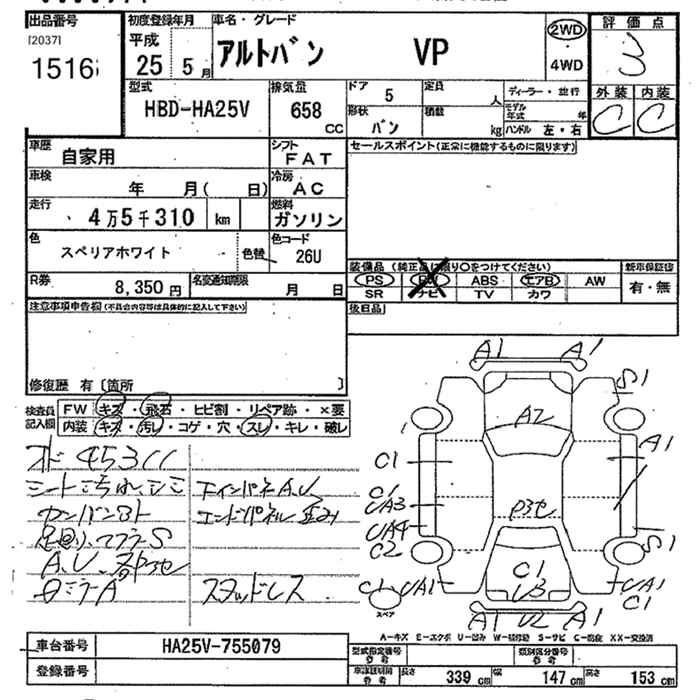 出品番号 初度登録年月 車名・グレード 評価点
[2037] 平成 アルトバン VP 2WD 3
1516 25 5月 4WD
型式 排気量 ドア 5 定員 人 ディーラー・並行 外装 内装
HBD-HA25V 658 CC 形状 バン 積載 kg モデル年式 年 C C
ハンドル 左・右
車歴 自家用 シフト FAT セールスポイント(正常に機能するものに限ります)
車検 年 月( 日) 冷房 AC
走行 4万5千310 km 燃料 ガソリン
色 スペリアホワイト 色替 色コード 26U
装備品 (純正品に限り○をつけてください) 新車保証書
R券 8,350円 名変通知期限 月 日 PS PW ABS エアB AW 有・無
SR ナビ TV カワ
注意事項申告欄(不具合内容等は具体的に記入して下さい) 後日品
修復歴 有 〔箇所 〕
検査員記入欄 FW キズ・飛石・ヒビ割・リペア跡・×要
内装 キズ・汚れ・コゲ・穴・スレ・キレ・破レ
オド 45311
シート汚れ、シミ FインパネA.U
カンバンアト エンドパネル歪み
足廻り、マフラーS
A.U.
ミラーA スタッドレス
A1 A1
S1
A2
A1
C1
C1
UA3
UA4
C2
S1
C1 UA1 C1 U3 UA1 C1
スペア
A1 U2 A1
A−キズ E−エクボ U−凹み W−補修跡 S−サビ C−腐食 XX−交換済
車台番号 HA25V-755079 型式指定番号 参考 類別区分番号 参考
登録番号 車検証明有 参考 長さ 339cm 幅 147cm 高さ 153cm